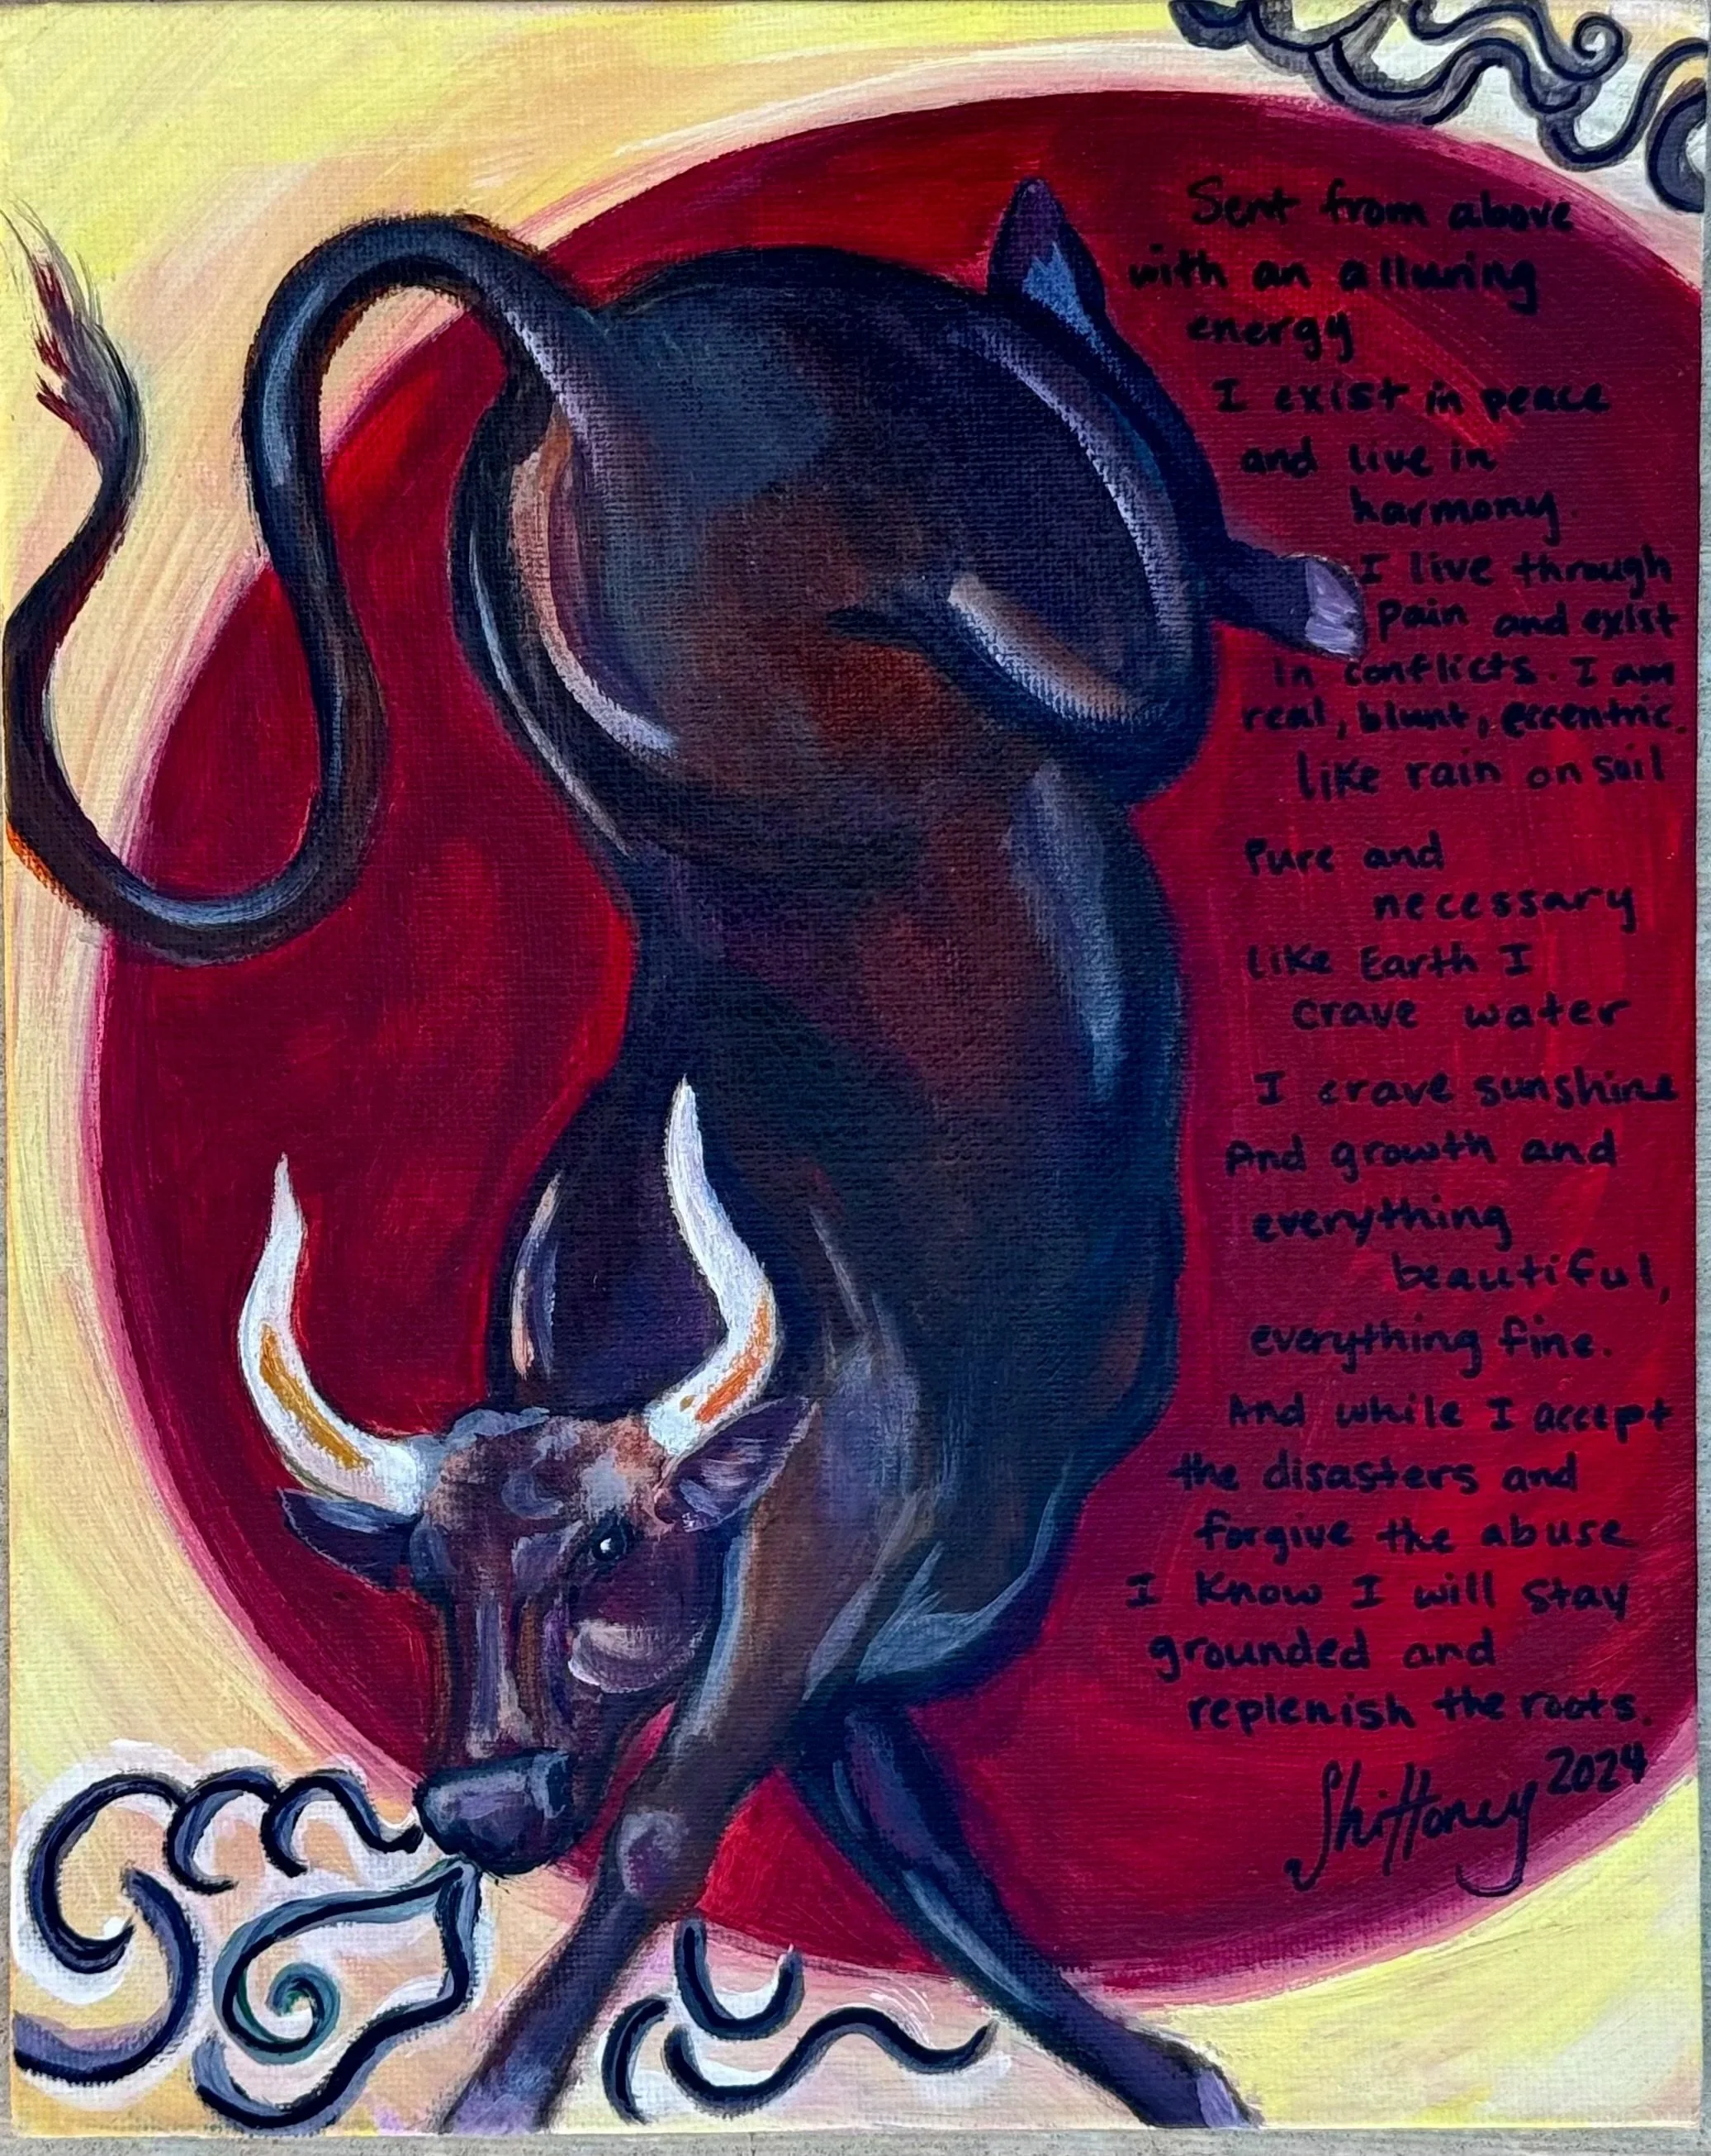 Sent from above
with an alluring
energy
I exist in peace
and live in
harmony.
I live through
Pain and exist
In conflicts. I am
real, blunt, eccentric.
like rain on soil
Pure and
necessary
Like Earth I
crave water
I crave sunshine
And growth and
everything
beautiful,
everything fine.
And while I accept
the disasters and
forgive the abuse
I know I will stay
grounded and
replenish the roots.
ShiHoney 2024